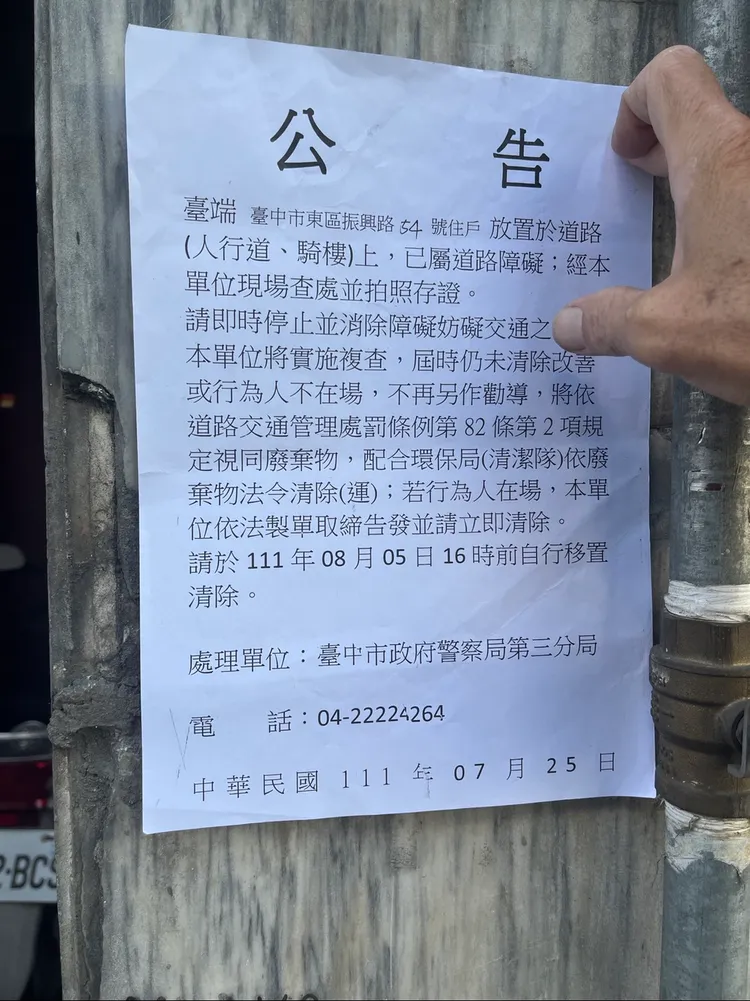 公 告
臺端 臺中市東區振興路 54 號住戶 放置於道路
(人行道、騎樓)上，已屬道路障礙；經本
單位現場查處並拍照存證。
請即時停止並消除障礙妨礙交通之
本單位將實施複查，屆時仍未清除改善
或行為人不在場，不再另作勸導，將依
道路交通管理處罰條例第 82 條第 2 項規
定視同廢棄物，配合環保局(清潔隊)依廢
棄物法令清除(運)；若行為人在場，本單
位依法製單取締告發並請立即清除。
請於 111 年 08 月 05 日 16 時前自行移置
清除。
處理單位：臺中市政府警察局第三分局
電 話：04-22224264
中華民國 111 年 07 月 25 日